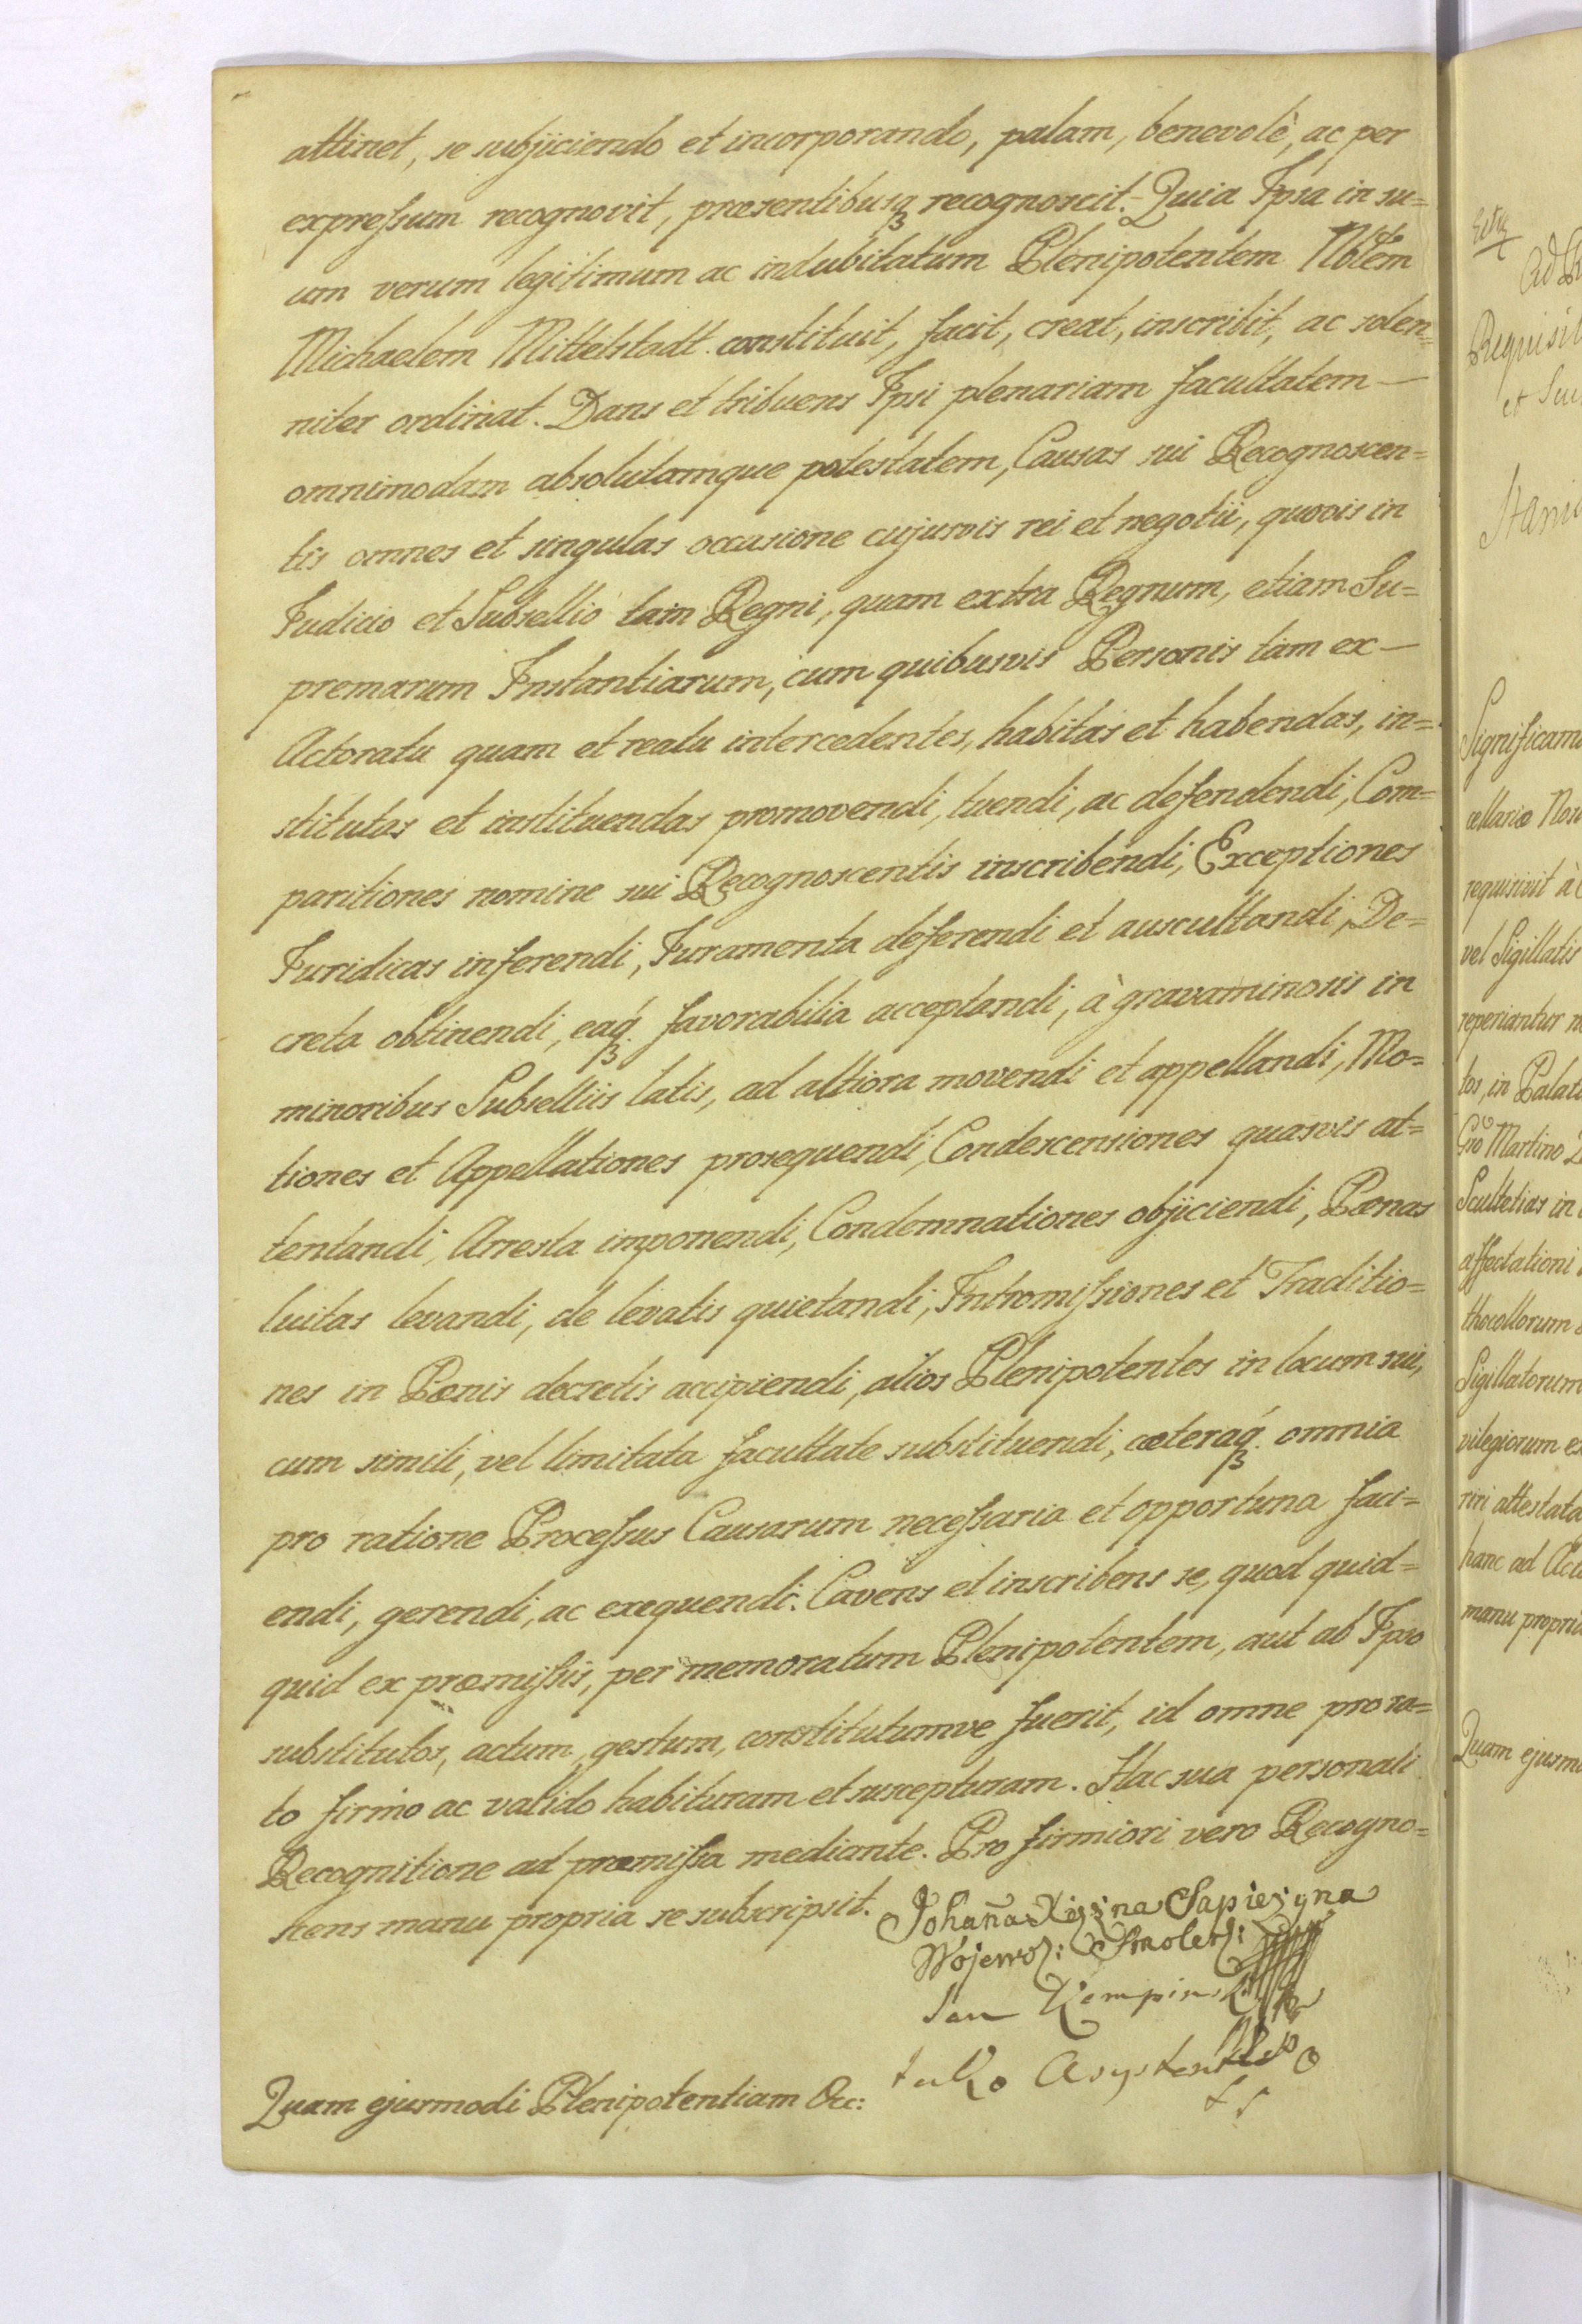 attinet, se subjiciendo et incorporando, palam, benevolè, ac per
expreſsum recognovit, præsentibusq̃ recognoscit. Quia Ipsa in su=
um verum legitimum ac indubitatum Plenipotentem Nbĩlem
Michaelem Mittelstadt constituit, facit, creat, inscribit, ac solen=
niter ordinat. Dans et tribuens Ipsi plenariam facultatem —
omnimodam absolutamque potestatem, Causas sui Recognoscen=
tis omnes et singulas occasione cujusvis rei et negotii, quovis in
Judicio et Subsellio tam Regni, quam extra Regnum, etiam Su=
premarum Instantiarum, cum quibusvis Personis tam ex —
Actoratu quam et reatu intercedentes, habitas et habendas, in=
stitutas et instituendas promovendi, tuendi, ac defendendi, Com=
paritiones nomine sui Recognoscentis inscribendi, Exceptiones
Juridicas inferendi, Juramenta deferendi et auscultandi, De=
creta obtinendi, eaq́ꝫ favorabilia acceptandi, à gravaminosis in
minoribus Subselliis latis, ad altiora movendi et appellandi, Mo=
tiones et Appellationes prosequendi, Condescensiones quasvis at=
tentandi, Arresta imponendi, Condemnationes objiciendi, Pœnas
luitas levandi, de levatis quietandi, Intromiſsiones et Traditio=
nes in Pœnis decretis accipiendi, alios Plenipotentes in locum sui,
cum simili, vel limitata facultate substituendi, cæteraq́ꝫ omnia
pro ratione Proceſsus Causarum neceſsaria et opportuna faci=
endi, gerendi, ac exequendi. Cavens et inscribens se, quod quid=
quid ex præmiſsis, per memoratum Plenipotentem, aut ab Ipso
substitutos, actum, gestum, constitutumve fuerit, id omne pro ra=
to firmo ac valido habituram et suscepturam. Hac sua personali
Recognitione ad præmiſsa mediante. Pro firmiori vero Recogno=
scens manu propria se subscripsit. Johan̄a Xięzna Sapiezyna
Wojewodz: Smolens:
Jan Kempinski
tako Asystent
Quam ejusmodi Plenipotentiam &c:
Ad
Requisit
et
Significam
cellariæ Nos
requisivit à
vel Sigillatis
reperiantur
tos, in Palat
Gn̄o Martino
Scultetias in
affectationi
thocollorum
Sigillatorum
vilegiorum
riri attestata
hanc ad Acta
manu propria
Quam ejusmo